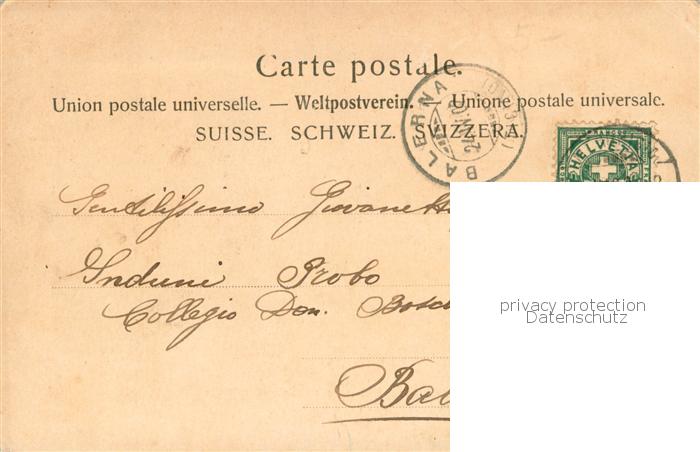 Carte postale.
Union postale universelle. — Weltpostverein. — Unione postale universale.
SUISSE. SCHWEIZ. SVIZZERA.
BALERNA
HELVETIA
FRANCO
Gentilissimo Giovanetto
Induni Probo
Collegio Don. Bosco
Bal
privacy protection
Datenschutz